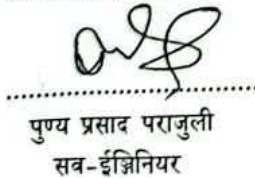 पुण्य प्रसाद पराजुली
सव-ईञ्जिनियर